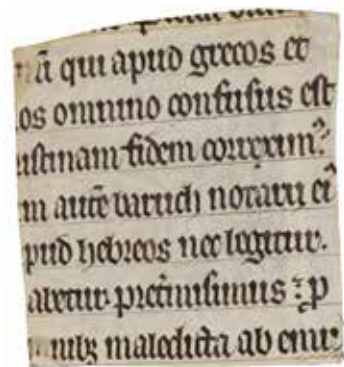 qui apud grecos et
os omnino confusus est
istinam fidem correxim᷒
m autē baruch notarii ei᷒
pud hebreos nec legitur.
abetur p̃tmisimus : p
nibꝫ maledicta ab emu